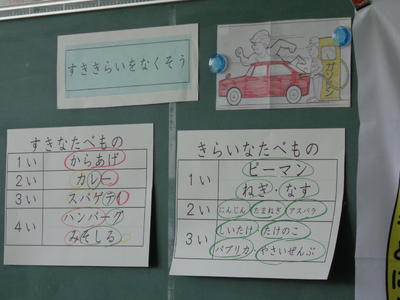 すききらいをなくそう
ガソリン
すきなたべもの
1い からあげ
2い カレー
3い スパゲティ
4い ハンバーグ
みそしる
きらいなたべもの
1い ピーマン
ねぎ・なす
2い にんじん たまねぎ アスパラ
3い しいたけ たけのこ
パプリカ・やさいぜんぶ